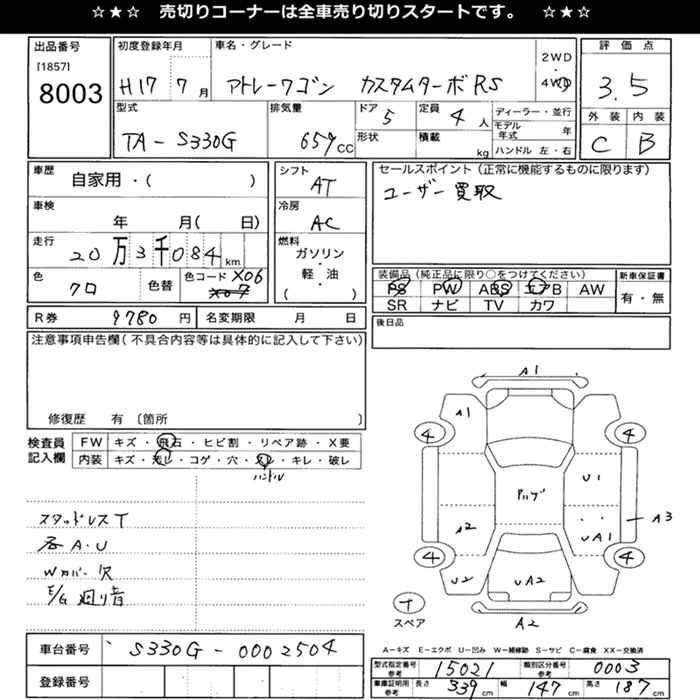 ☆★☆ 売切りコーナーは全車売り切りスタートです。 ☆★☆
出品番号
[1857]
8003
初度登録年月
H17 7 月
車名・グレード
アトレーワゴン カスタムターボRS
2WD
・
4WD
評価点
3.5
外装 内装
C B
型式
TA-S330G
排気量
659cc
ドア
5
形状
定員
4 人
積載
kg
ディーラー・並行
モデル年式 年
ハンドル 左・右
車歴
自家用・( )
車検
年 月( 日)
走行
20万3千084km
色
クロ
色替
色コード X06
X07
シフト
AT
冷房
AC
燃料
ガソリン
・
軽・油
( )
セールスポイント(正常に機能するものに限ります)
ユーザー買取
装備品(純正品に限り○をつけてください)
PS PW ABS エアB AW
SR ナビ TV カワ
新車保証書
有・無
後日品
R券 9780 円
名変期限 月 日
注意事項申告欄(不具合内容等は具体的に記入して下さい)
修復歴 有 〔箇所 〕
検査員
記入欄
FW キズ・飛石・ヒビ割・リペア跡・X要
内装 キズ・汚レ・コゲ・穴・スレ・キレ・破レ
ハンドル
スタッドレスT
各A・U
Wカバー欠
E/G廻り音
車台番号 S330G-0002504
登録番号
A1
A1
4
4
U1
A2
UA1
A3
4
4
U2
UA2
A2
T
スペア
A-キズ E-エクボ U-凹み W-補修跡 S-サビ C-腐食 XX-交換済
型式指定番号
参考
15021
類別区分番号
参考
0003
車庫証明用
参考
長さ 339cm 幅 147cm 高さ 187cm